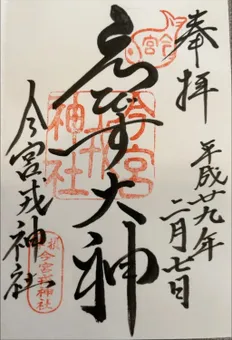 奉拝
平成廿九年
二月七日
ゑびす大神
今宮
今宮戎
神社
今宮戎神社
今宮戎神社